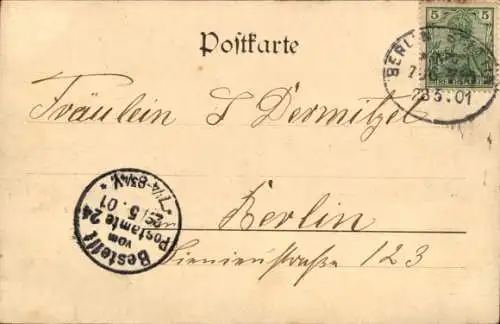 Postkarte
5 5
BERLIN
23 5.01
Fräulein S Dermitzel
Berlin
Linienstraße 123
Bestellt
vom
Postamte 24
5. 01